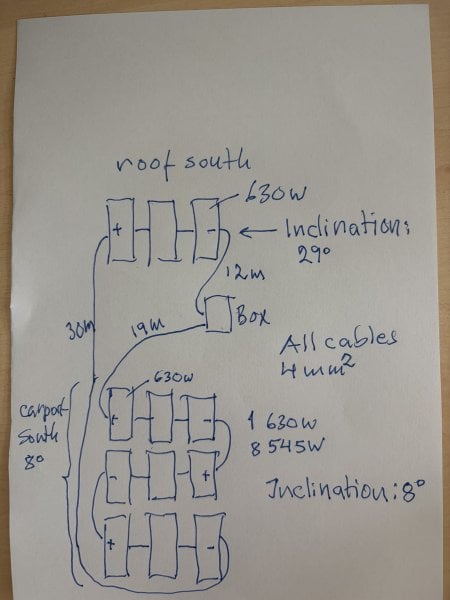 roof south
630W
+
-
Inclination:
29°
12m
Box
30m
19m
All cables
4mm²
630W
carport
South
8°
+
-
1 630W
8 545W
-
+
Inclination:8°
+
-